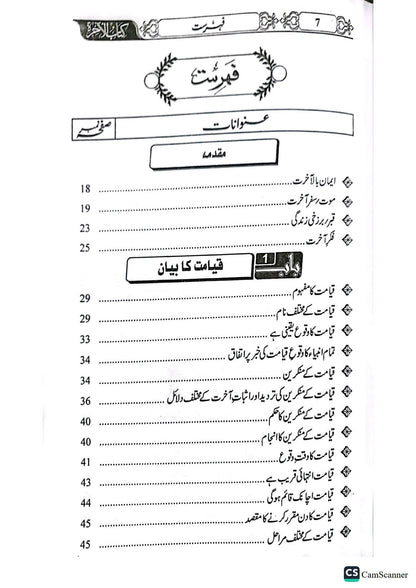 7 فہرست کتاب الآخرۃ
فہرست
عنوانات صفحہ نمبر
مقدمہ
ایمان بالآخرت 18
موت سفر آخرت 19
قبر/برزخی زندگی 23
فکر آخرت 25
باب 1 قیامت کا بیان
قیامت کا مفہوم 29
قیامت کے مختلف نام 29
قیامت کا وقوع یقینی ہے 33
تمام انبیاء کا وقوع قیامت کی خبر پر اتفاق 34
قیامت کے منکرین 34
قیامت کے منکرین کی تردید اور اثبات آخرت کے مختلف دلائل 36
قیامت کے منکرین کا حکم 40
قیامت کے منکرین کا انجام 40
قیامت کا وقت وقوع 41
قیامت انتہائی قریب ہے 43
قیامت اچانک قائم ہوگی 44
قیامت کا دن مقرر کرنے کا مقصد 45
قیامت کے مختلف مراحل 45
CS CamScanner